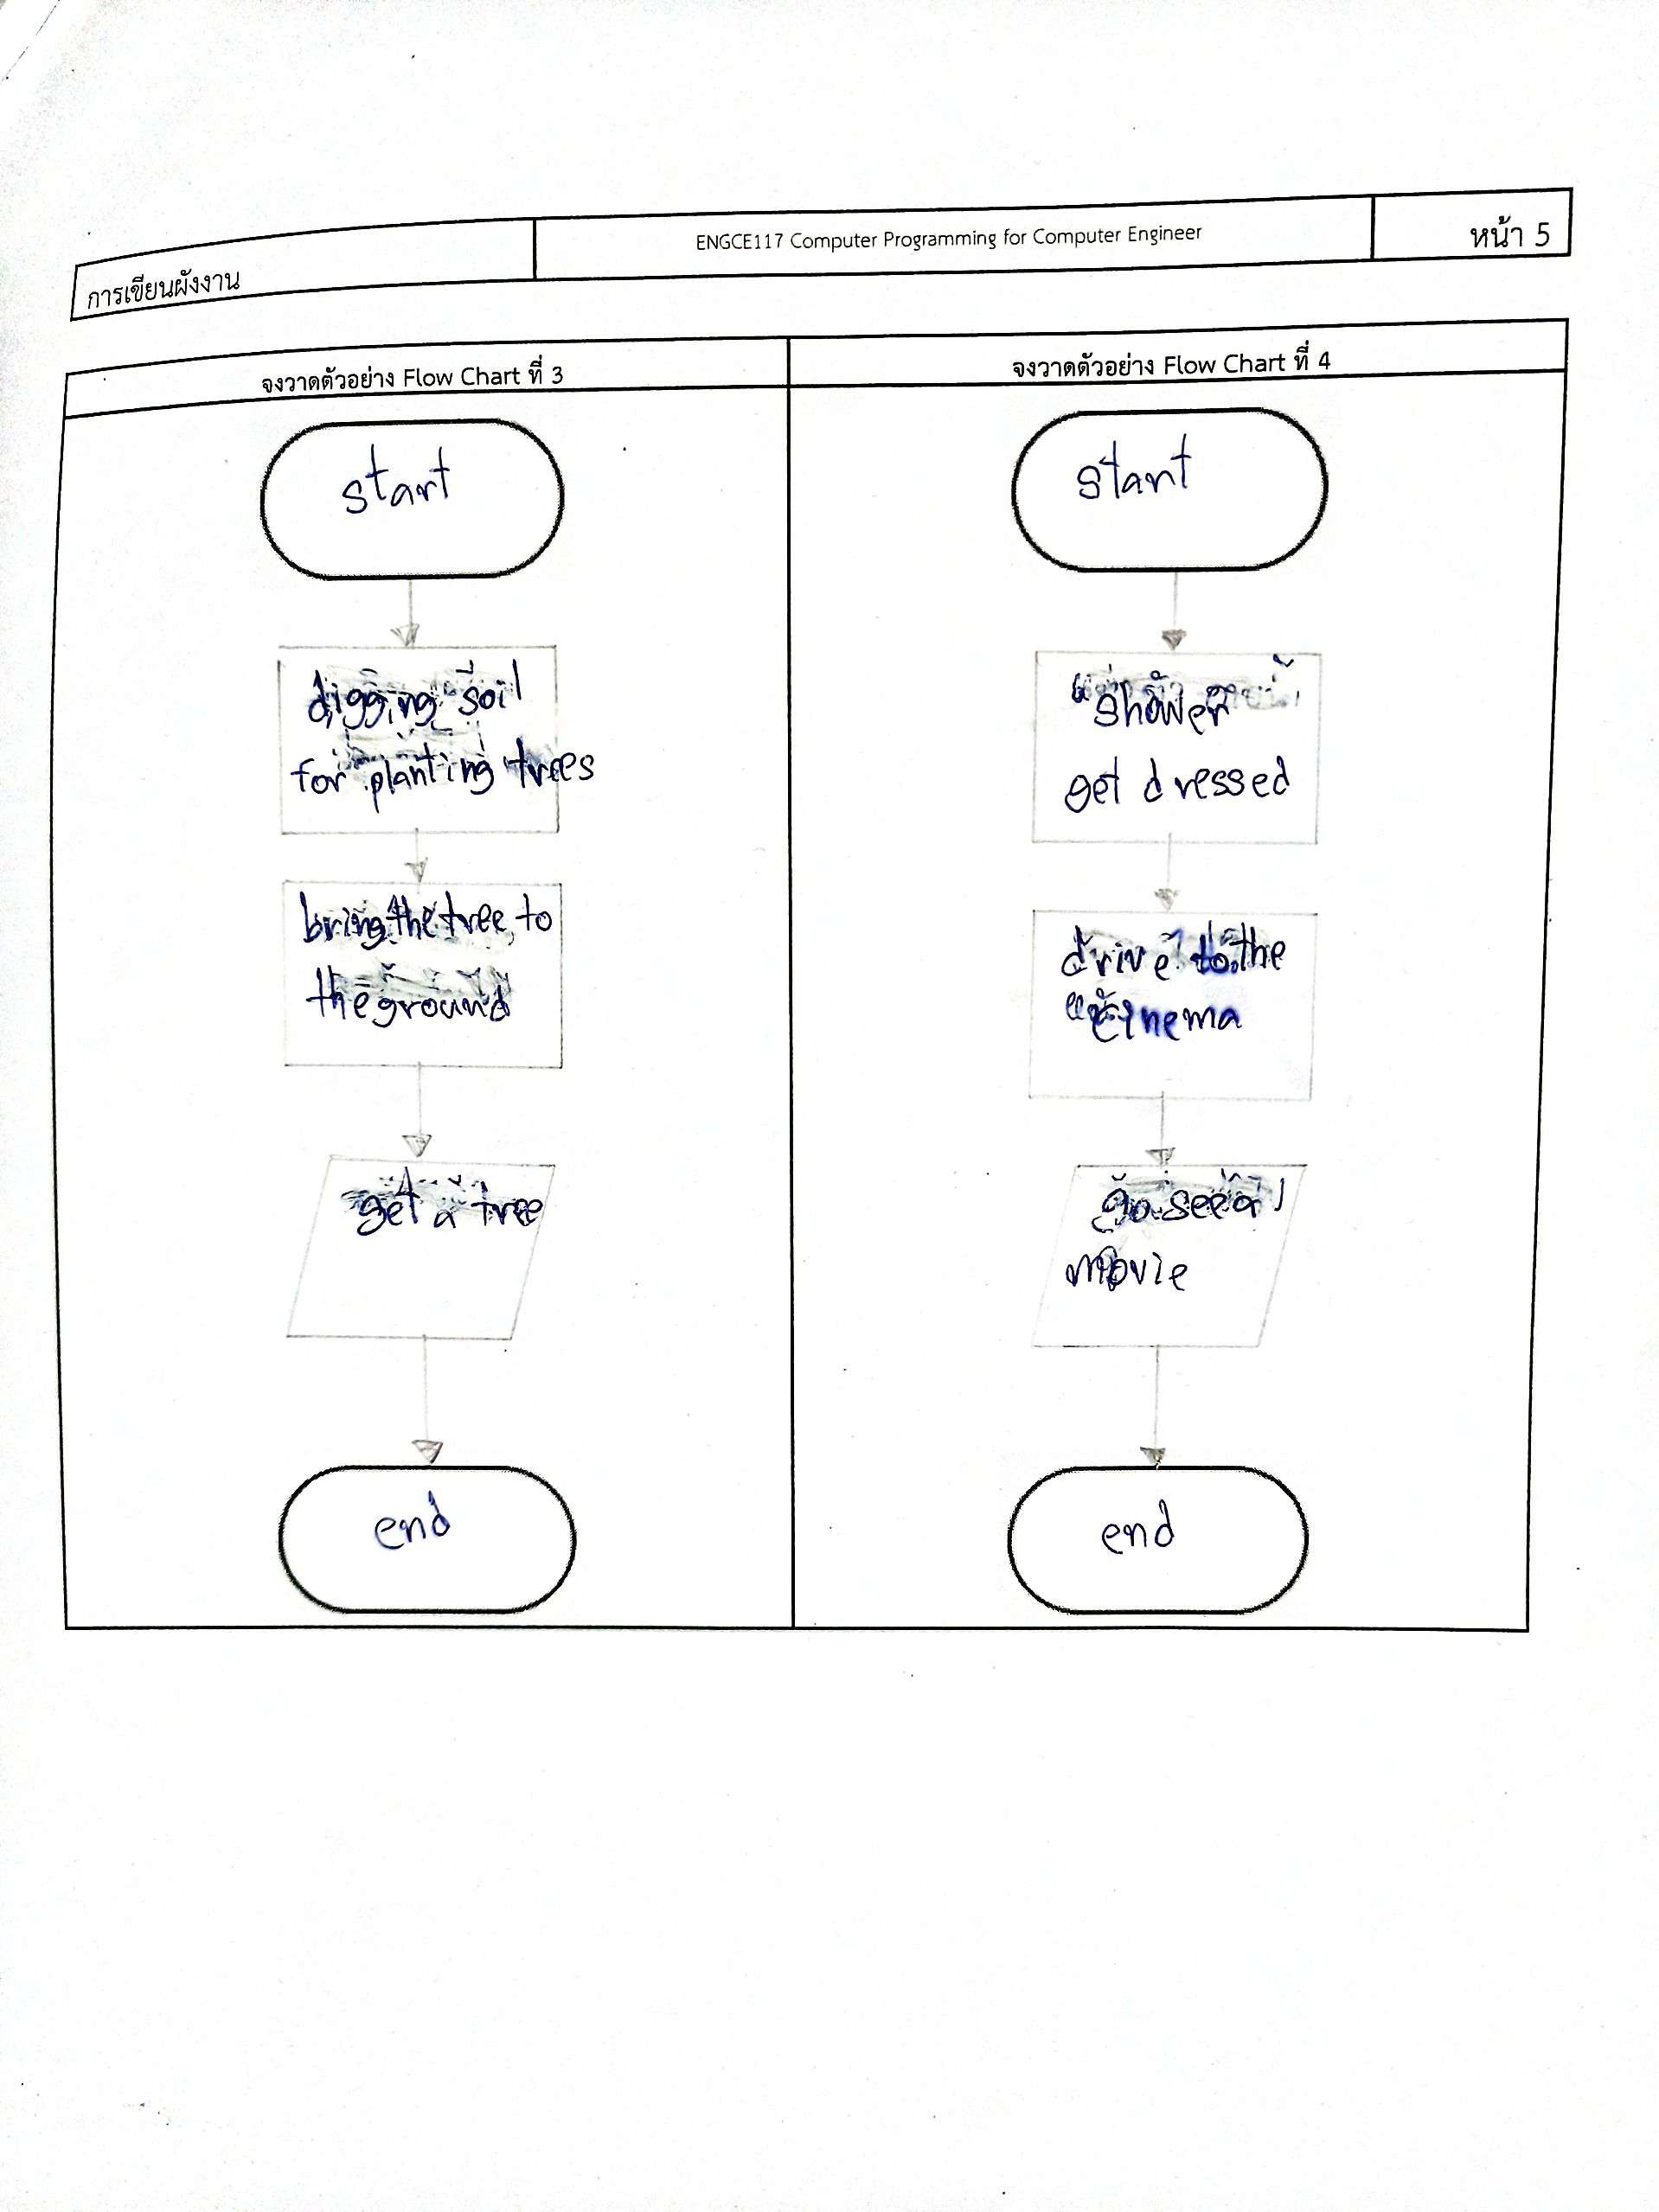 การเขียนผังงาน
ENGCE117 Computer Programming for Computer Engineer
หน้า 5
จงวาดตัวอย่าง Flow Chart ที่ 3
start
digging soil
for planting trees
bring the tree to
the ground
get a tree
end
จงวาดตัวอย่าง Flow Chart ที่ 4
start
shower
get dressed
drive to the
cinema
go see a
movie
end